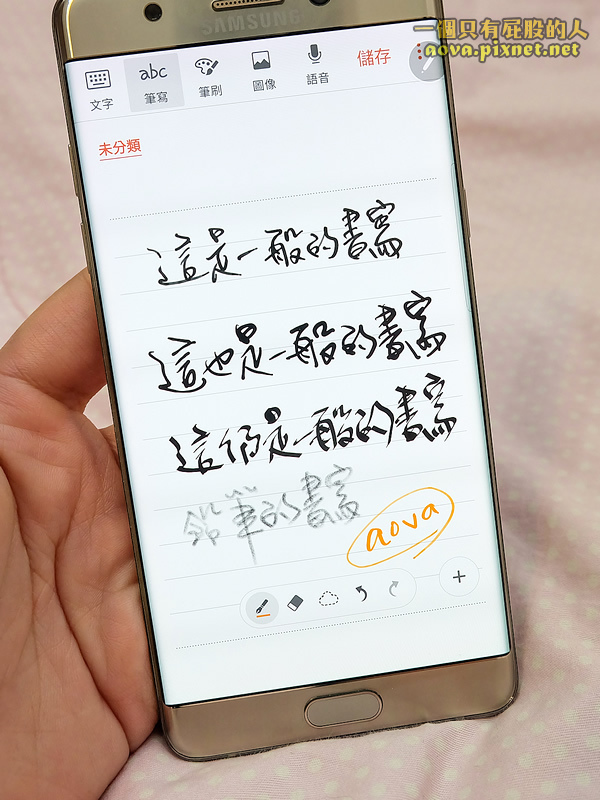 一個只有屁股的人
aova.pixnet.net
SAMSUNG
abc
文字 筆寫 筆刷 圖像 語音 儲存
未分類
這是一般的書寫
這也是一般的書寫
這 是一般的書寫
鉛筆的書寫
aova